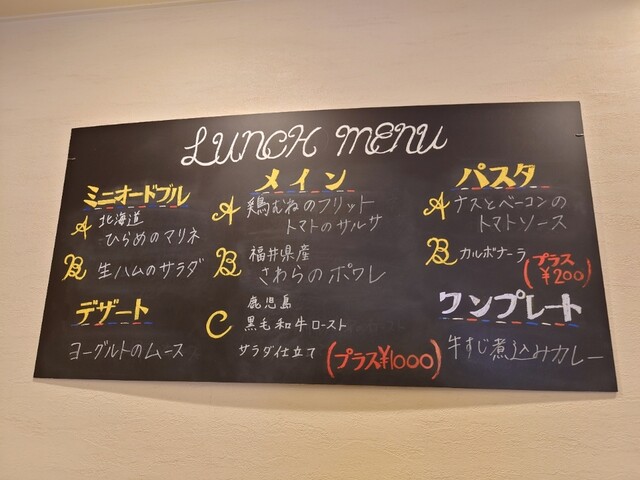 LUNCH MENU
ミニオードブル
A 北海道
ひらめのマリネ
B 生ハムのサラダ
デザート
ヨーグルトのムース
メイン
A 鶏むねのフリット
トマトのサルサ
B 福井県産
さわらのポワレ
C 鹿児島
黒毛和牛ロースト
サラダ仕立て (プラス¥1000)
パスタ
A ナスとベーコンの
トマトソース
B カルボナーラ (プラス
¥200)
ワンプレート
牛すじ煮込みカレー